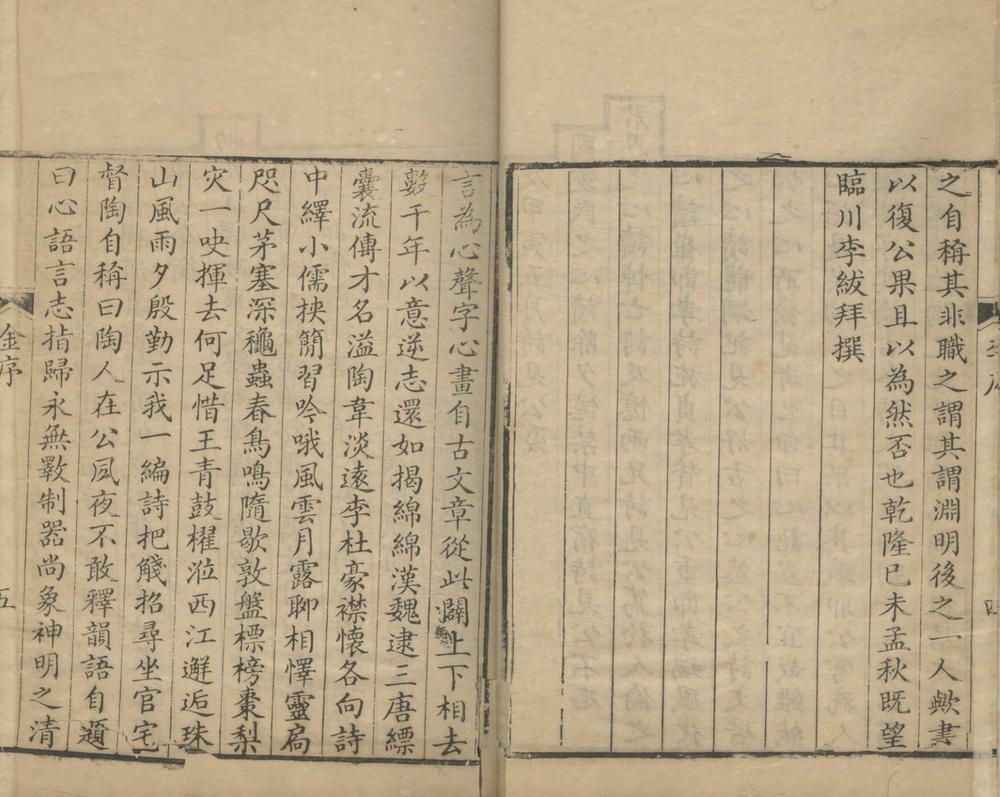 之自稱其非職之謂其謂淵明後之一人歟書
以復公果且以為然否也乾隆己未孟秋既望
臨川李紱拜撰
四
言為心聲字心畫自古文章從此闢上下相去
數千年以意逆志還如揭綿綿漢魏逮三唐縹
囊流傳才名溢陶韋淡遠李杜豪襟懷各向詩
中繹小儒挾簡習吟哦風雲月露聊相懌靈扃
咫尺茅塞深龝蟲春鳥鳴隋歇敦盤標榜棗梨
灾一吷揮去何足惜王青鼓櫂涖西江邂逅珠
山風雨夕殷勤示我一編詩把觴招尋坐官宅
督陶自稱曰陶人在公夙夜不敢釋韻語自題
曰心語言志指歸永無斁制器尚象神明之清
金序
五